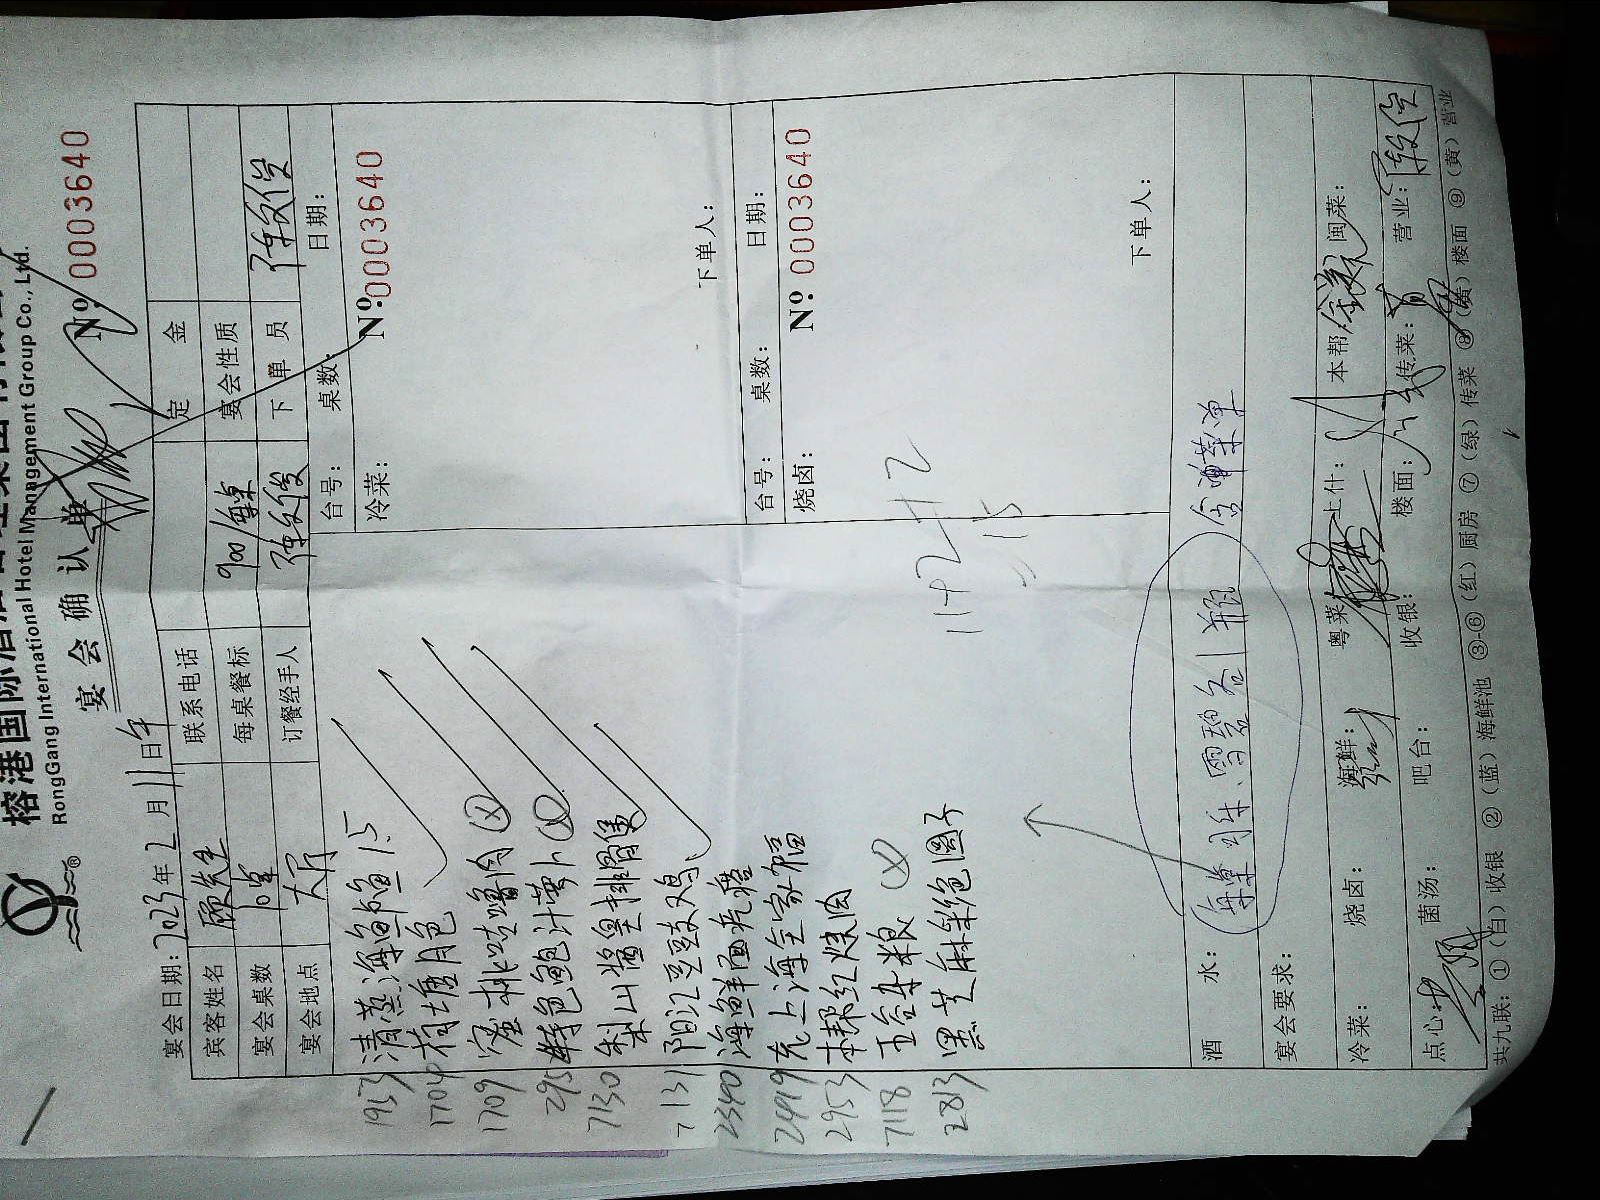 榕港国际酒店管理集团有限公司
RongGang International Hotel Management Group Co., Ltd.
宴会确认单 № 0003640
宴会日期：2023年2月11日午
宾客姓名 顾先生 联系电话 定金
宴会桌数 10桌 每桌餐标 900/桌 宴会性质
宴会地点 大厅 订餐经手人 陈文俊 下单员 陈文俊
台号： 桌数： 日期：
冷菜： № 0003640
1953 清蒸海鲈鱼 1.5
1704 荷塘月色
1709 蜜桃咕噜肉
295 特色鲍汁萝卜
7130 梨山酱皇排骨煲
7131 阳江豆豉鸡
2340 海鲜面疙瘩
2419 老上海全家福
2953 本帮红烧肉
7118 五谷杂粮
2813 黑芝麻彩色圆子
下单人：
台号： 桌数： 日期：
烧卤： № 0003640
11+2+2
15
下单人：
酒水： 每桌可乐、雪碧各1瓶 含涮菜单
宴会要求：
冷菜： 烧卤： 海鲜： 粤菜： 上什： 本帮： 闽菜：
点心： 菌汤： 吧台： 收银： 楼面： 传菜： 营业：
共九联：①（白）收银 ②（蓝）海鲜池 ③-⑥（红）厨房 ⑦（绿）传菜 ⑧（黄）楼面 ⑨（黄）营业